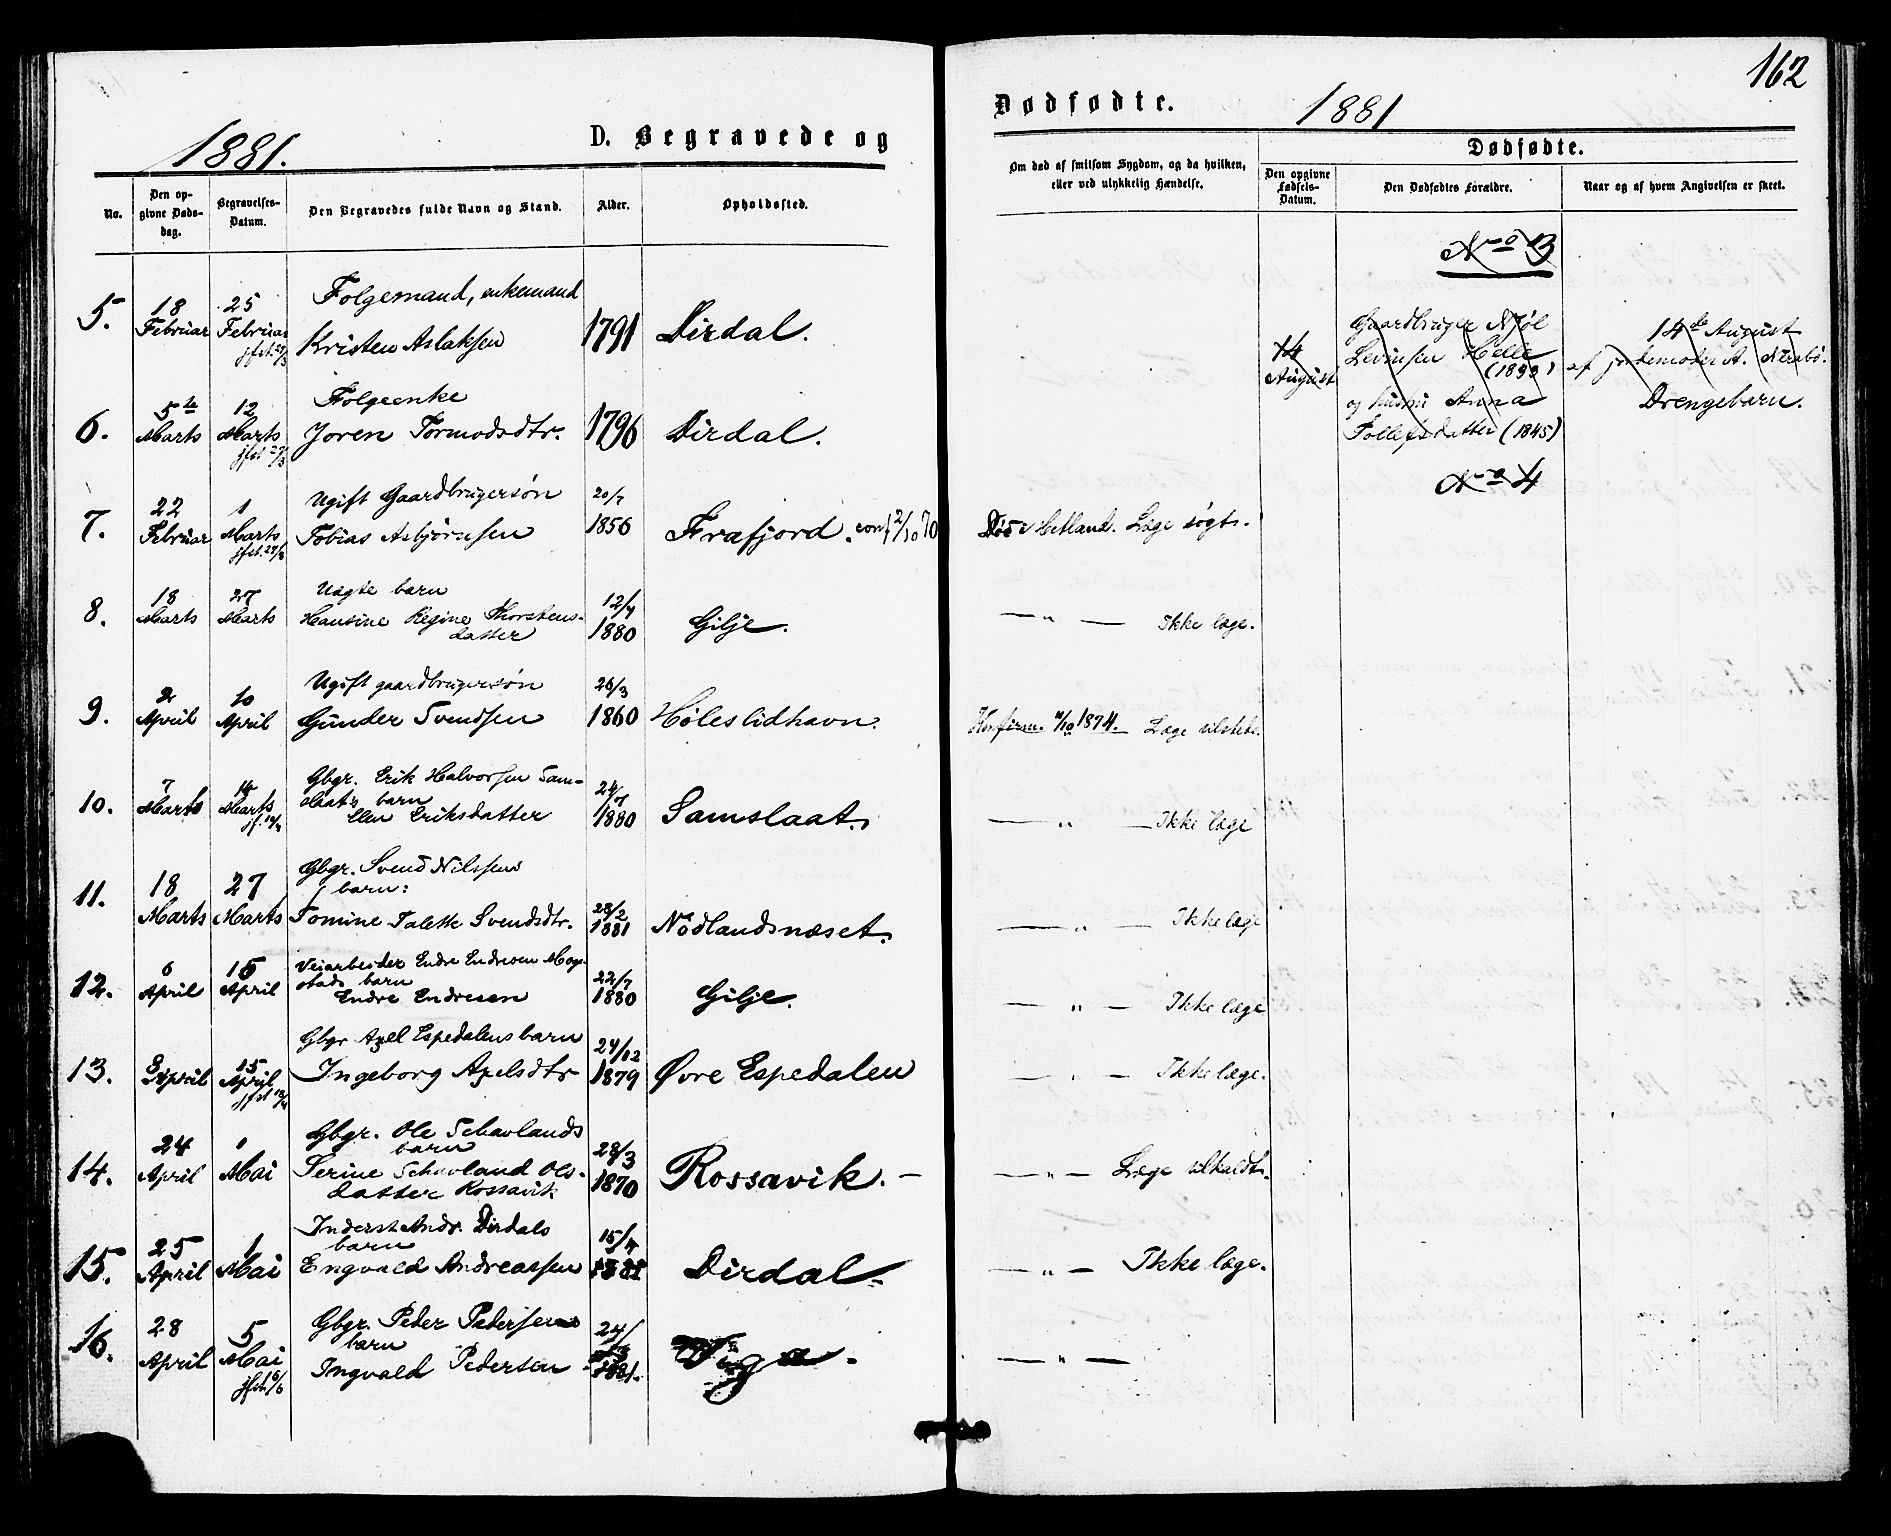 162
1881.
D. Begravede og
Dødfødte.
1881
No.
Den op-
givne Døds-
dag.
Begravelses-
Datum.
Den Begravedes fulde Navn og Stand.
Alder.
Opholdssted.
Om død af smitsom Sygdom, og da hvilken,
eller ved ulykkelig Hændelse.
Dødfødte.
Den opgivne
Fødsels-
Datum.
Den Dødfødtes Forældre.
Naar og af hvem Angivelsen er skeet.
5.
18
Februar
25
Februar
jfst. 27/3
Folgemand, enkemand
Kristen Aslaksen
1791
Dirdal.
6.
5te
Marts
12
Marts
jfst 27/3
Folgeenke
Joren Tormodsdtr.
1796
Dirdal.
7.
22
Februar
1
Marts
jfst. 27/3
Ugift Gaardbrugersøn
Tobias Asbjørnsen
20/7
1856
Frafjord. conf 2/10 70
Død i Hetland. Læge søgt.
8.
18
Marts
27
Marts
Uægte barn
Hansine Regine Thorstens-
datter
12/4
1880
Gilje.
— " — Ikke læge.
9.
2
April
10
April
Ugift gaardbrugersøn
Gunder Svendsen
26/3
1860
Høleslidhavn.
Konfirm. 4/10 1874. — Læge tilstede.
10.
7
Marts
14
Marts
Gbgr. Erik Halvorsen Sam-
slaats barn
Elen Eriksdatter
24/7
1880
Samslaat.
— " — Ikke læge
11.
18
Marts
27
Marts
Gbgr. Svend Nilssens
barn:
Tomine Talette Svendsdtr.
28/2
1881
Nødlandsnæset.
— " — Ikke læge
12.
6
April
15
April
Veiarbeider Endre Endresen Mog-
stads barn
Endre Endresen
22/7
1880
Gilje.
— " — Ikke læge
13.
8
April
15
April
jfst 18/4
Gbgr Axel Espedalens barn
Ingeborg Axelsdtr
24/12
1879
Øvre Espedalen
— " — Ikke læge.
14.
24
April
1
Mai
Gbgr. Ole Schavlands
barn
Serine Schavland Ols-
datter Rossavik
28/3
1870
Rossavik. —
— " — Læge tilkaldt.
15.
25
April
1
Mai
Inderst Andr. Dirdals
barn
Engvald Andreassen
15/4
1881
Dirdal.
— " — Ikke læge.
16.
28
April
5
Mai
jfst. 6/6
Gbgr. Peder Pedersens
barn
Ingvald Pedersen
24/
1881.
— " —
No 3
14
August
Gaardbruger Njøl
Levinsen Helle
og hustru Anna
Tollefsdatter (1845)
14de August
af jordemoder A. Mrabø.
Drengebarn.
No 4